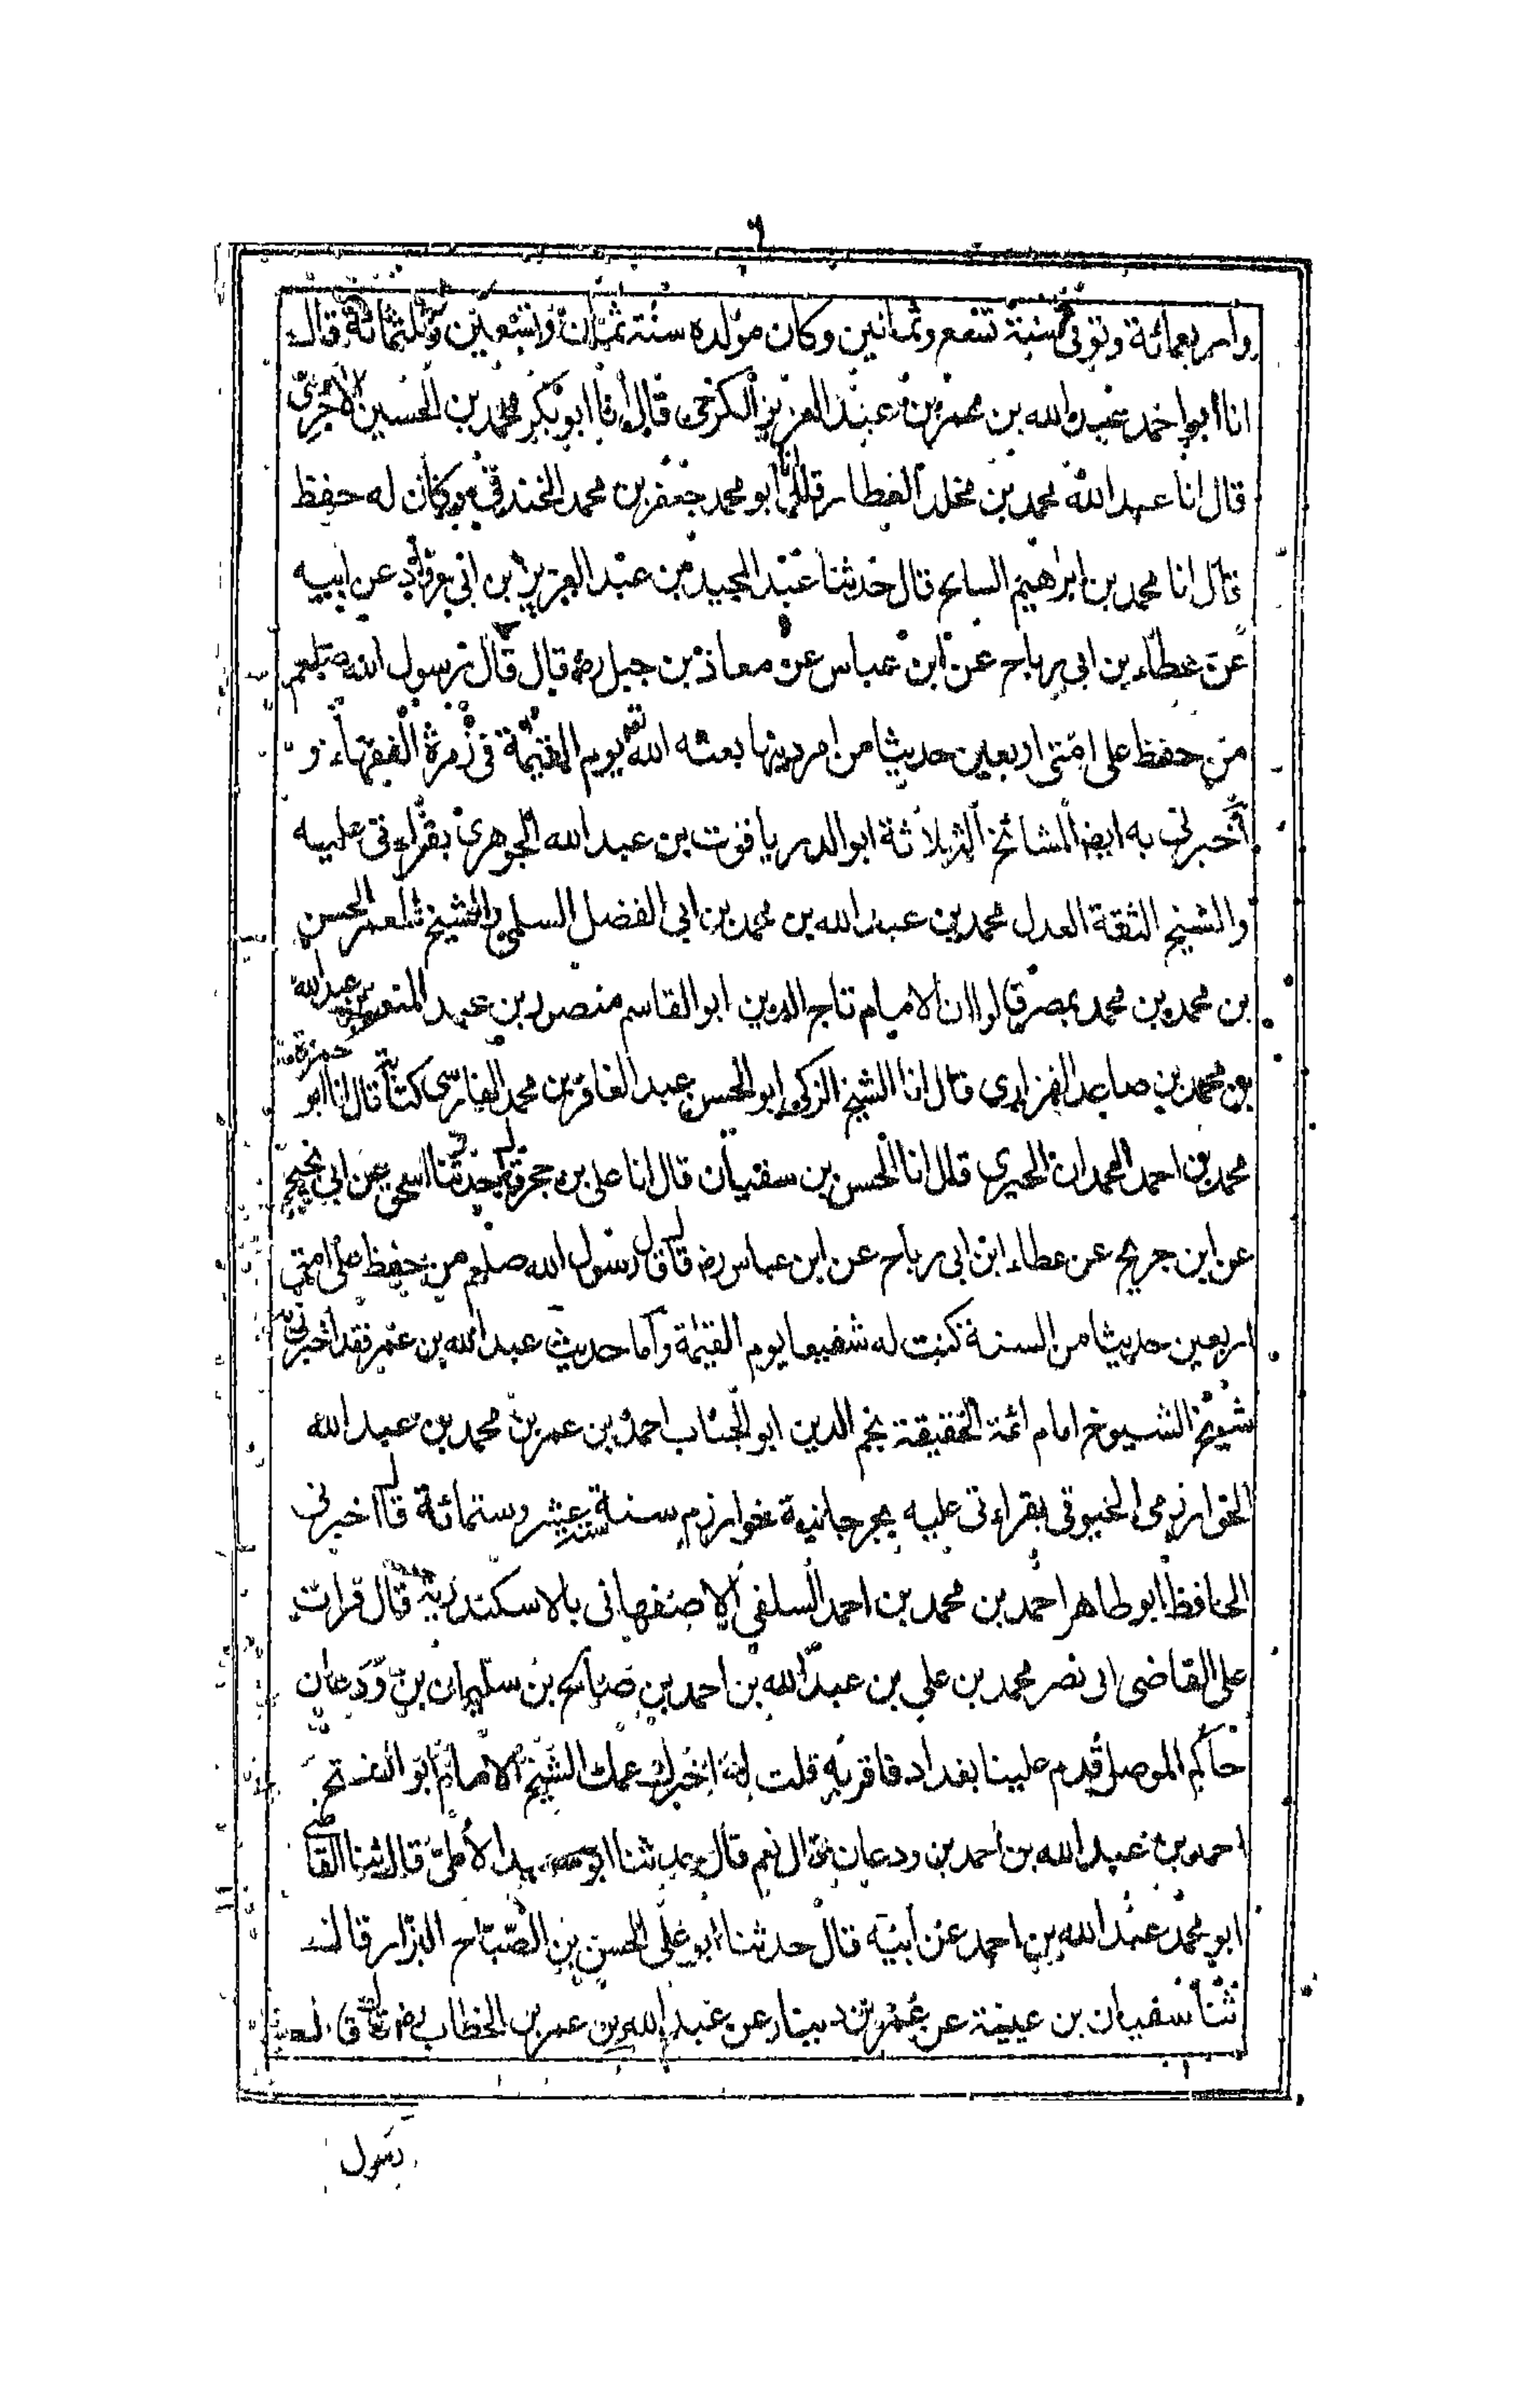 ٦
واربعمائة وتوفى سنة تسع وثمانين وكان مولده سنة ثمان وتسعين وثلثمائة قال
انا ابو احمد عبيد الله بن عمر بن عبد العزيز الكرخى قال انا ابو بكر محمد بن الحسين الاجرى
قال انا عبد الله محمد بن مخلد العطار قال انا ابو محمد جعفر بن محمد الخندقى وكان له حفظ
قال انا محمد بن ابراهيم السايح قال حدثنا عبد المجيد بن عبد العزيز بن ابى رواد عن ابيه
عن عطاء بن ابى رباح عن ابن عباس عن معاذ بن جبل رض قال قال رسول الله صلعم
من حفظ على امتى اربعين حديثا من امر دينها بعثه الله تع يوم القيمة فى زمرة الفقهاء و
أخبرنى به ايضا المشائخ الثلاثة ابو الدر ياقوت بن عبد الله الجوهرى بقراءتى عليه
والشيخ الثقة العدل محمد بن عبد الله بن محمد بن ابى الفضل السلمى والشيخ المعمر الحسن
بن محمد بن محمد بمصر قالوا ان الامام تاج الدين ابو القاسم منصور بن عبد المنعم بن عبد الله
بن محمد بن صاعد الفزارى قال انا الشيخ الزكى ابو الحسن عبد الغافر بن محمد الفارسى كتابة قال انا ابو حمزة
محمد بن احمد الحمدان الحيرى قال انا الحسن بن سفيان قال انا على بن حجر قال حدثنا اسحق عن ابى نجيح
عن ابن جريج عن عطاء ابن ابى رباح عن ابن عباس رض قال قال رسول الله صلعم من حفظ على امتى
اربعين حديثا من السنة كنت له شفيعا يوم القيمة وأما حديث عبد الله بن عمر فقد اخبرنى
شيخ الشيوخ امام ائمة الحقيقة نجم الدين ابو الجناب احمد بن عمر بن محمد بن عبد الله
الخوارزمى الخيوقى بقراءتى عليه بجرجانية خوارزم سنة ست عشر وستمائة قال اخبرنى
الحافظ ابو طاهر احمد بن محمد بن احمد السلفى الاصفهانى بالاسكندرية قال قرات
على القاضى ابى نصر محمد بن على بن عبد الله بن احمد بن صالح بن سليمان بن ودعان
حاكم الموصل قدم علينا بغداد فاقر به قلت له اخبرك عمك الشيخ الامام ابو الفتح
احمد بن عبيد الله بن احمد بن ودعان قال نعم قال حدثنا ابو الأملى قال ثنا القاضى
ابو محمد عبد الله بن احمد عن ابيه قال حدثنا ابو على الحسن بن الصّبّاح البزار قال
ثنا سفيان بن عيينة عن عمر بن دينار عن عبد الله بن عمر بن الخطاب رض قال قال
رسول